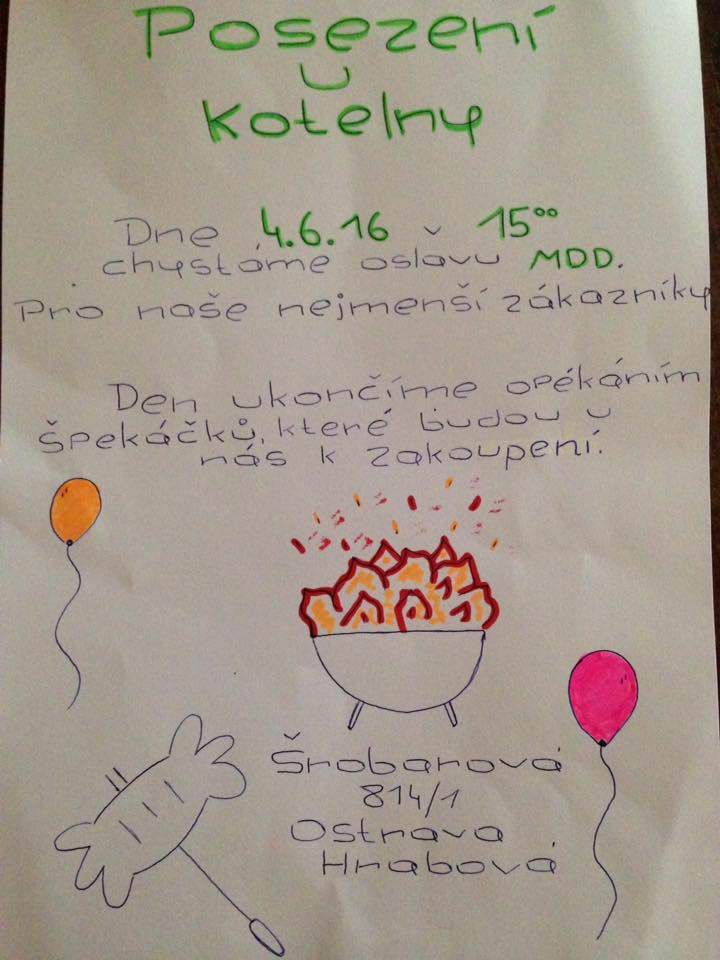 Posezení
U
kotelny
Dne 4.6.16 v 15⁰⁰
chystáme oslavu MDD.
Pro naše nejmenší zákazníky
Den ukončíme opékáním
špekáčků, které budou u
nás k zakoupení.
Šrobarová
814/1
Ostrava
Hrabová